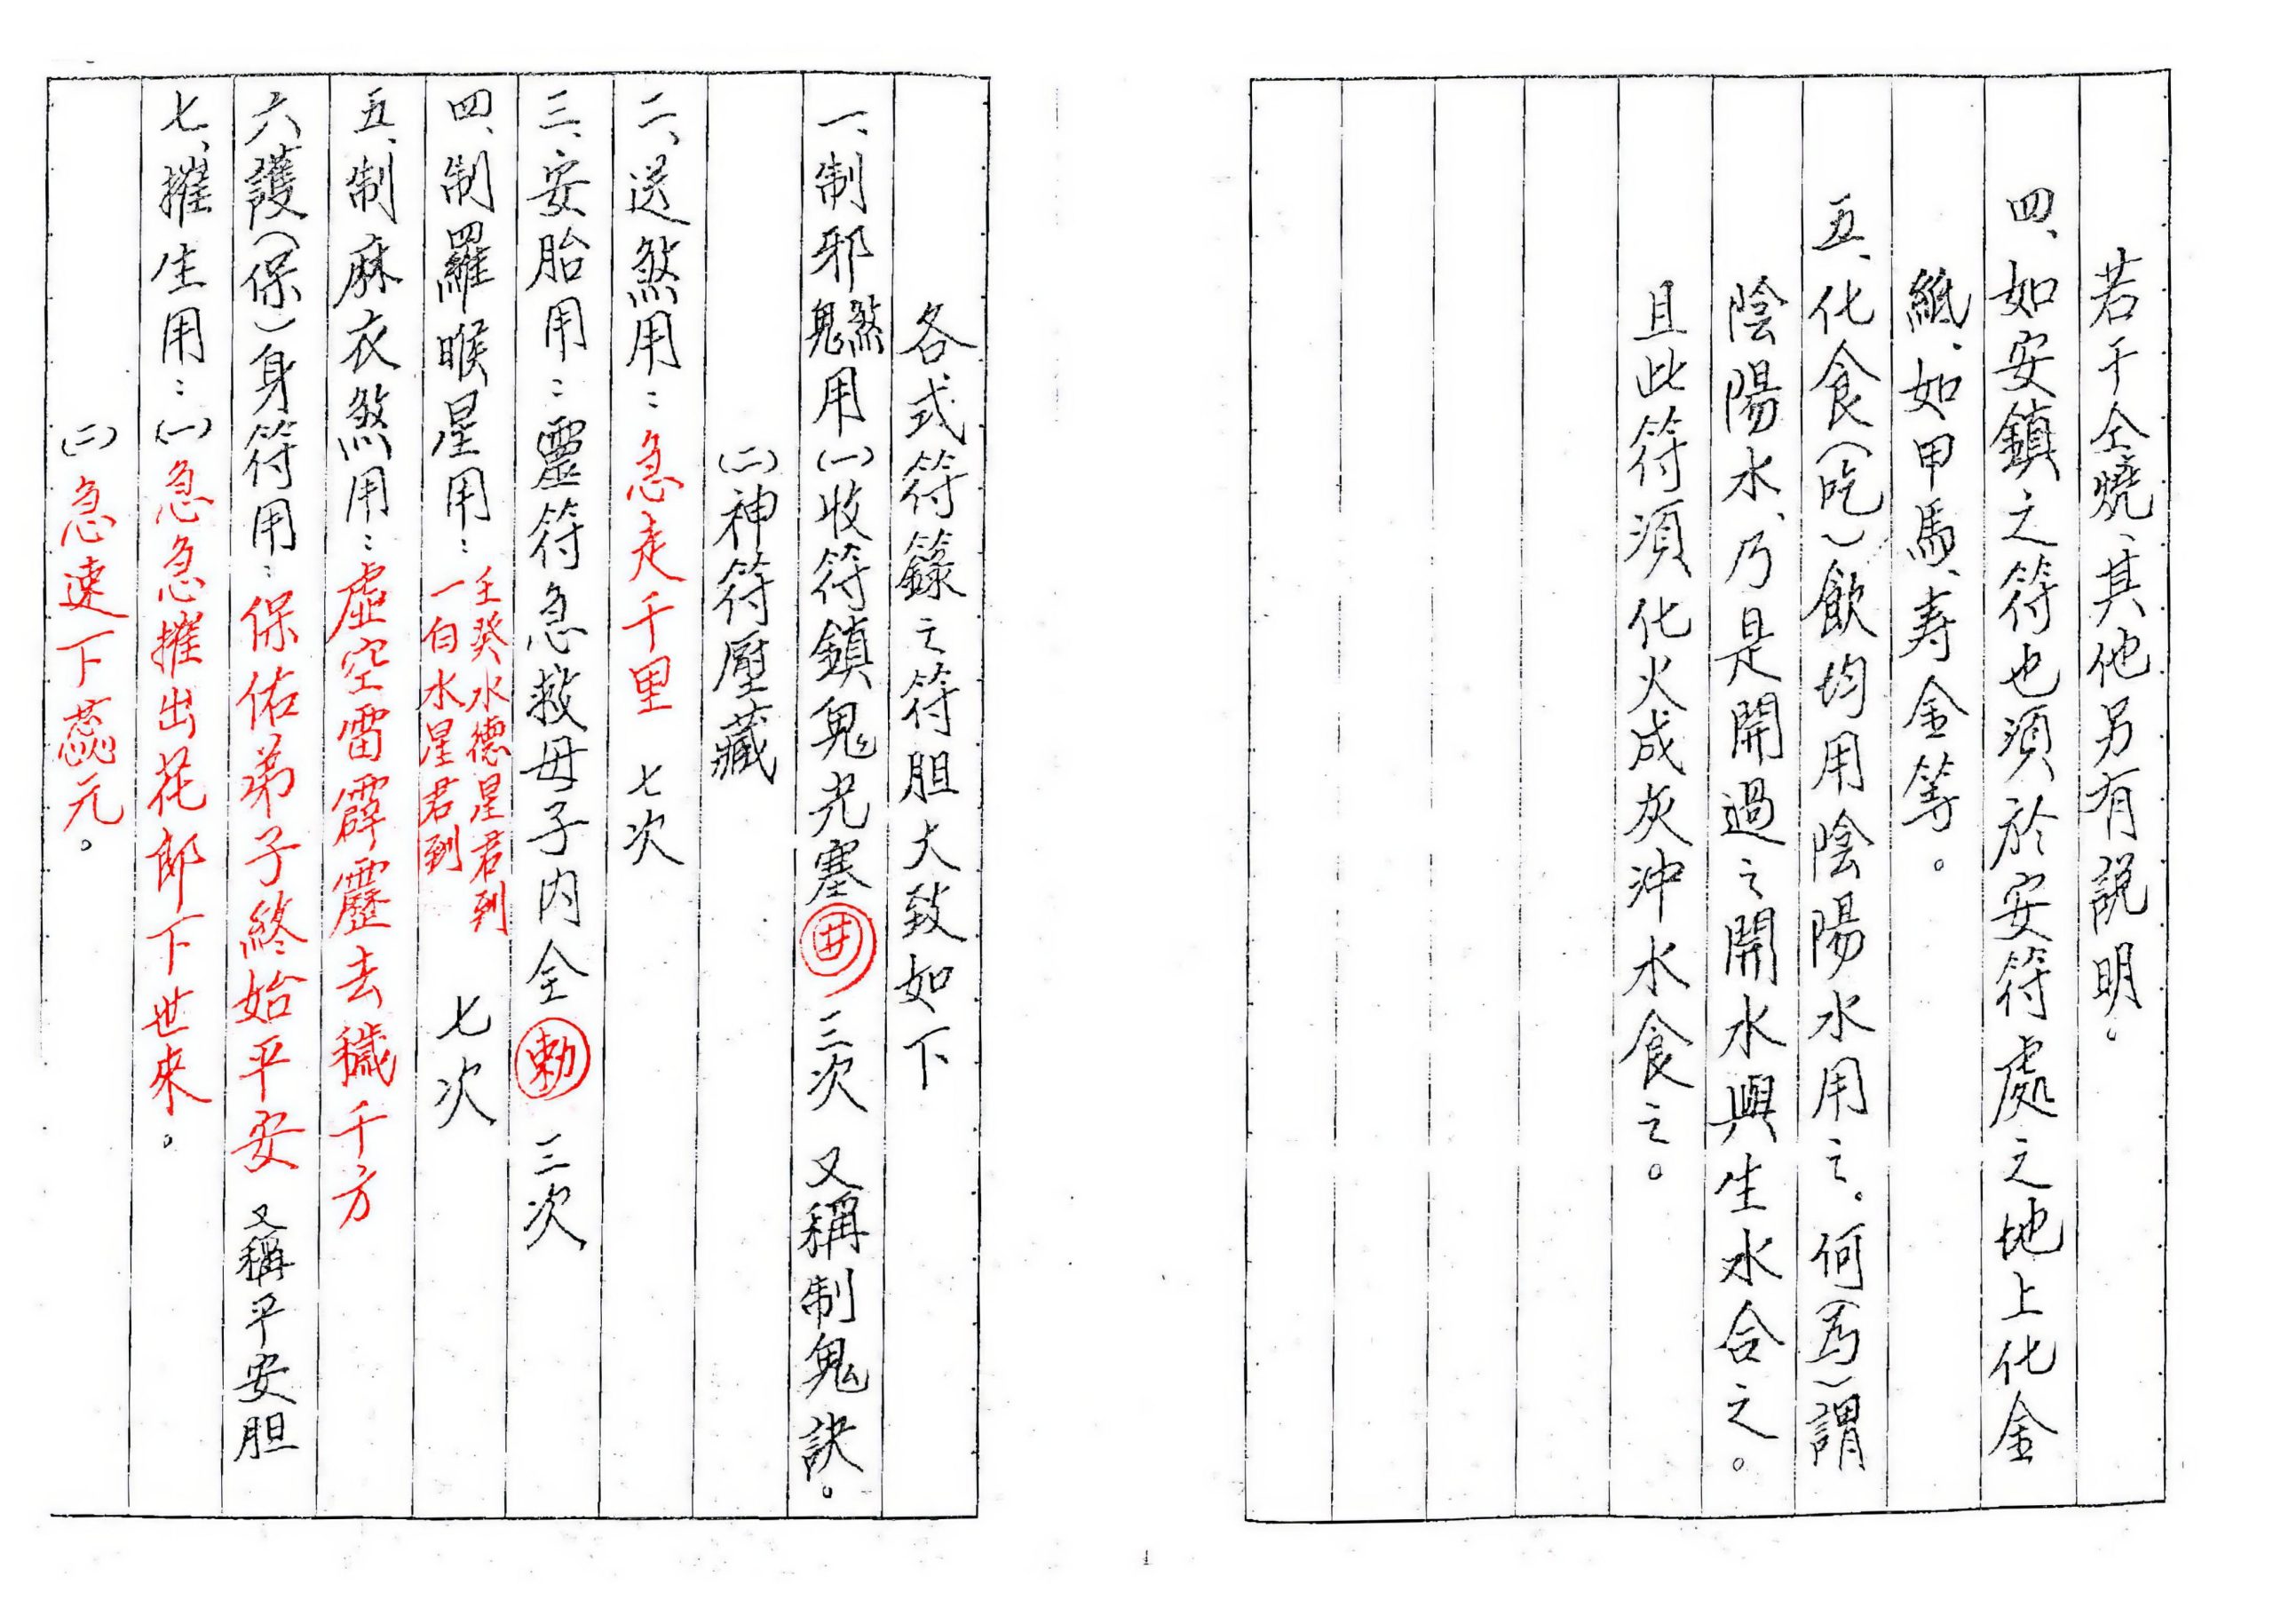 若干仝燒、其他另有說明。
四、如安鎮之符也須於安符處之地上化金
紙、如甲馬、寿金等。
五、化食(吃)飲均用陰陽水用之。何(為)謂
陰陽水、乃是開過之開水與生水合之。
且此符須化火成灰沖水食之。
各式符籙之符胆大致如下
一、制邪煞鬼用(一)收符鎮鬼光塞井 三次 又稱制鬼訣。
(二)神符壓藏
二、送煞用：急走千里 七次
三、安胎用：靈符急救母子內全 勅 三次
四、制羅睺星用：壬癸水德星君到 一白水星君到 七次
五、制麻衣煞用：虛空雷霹靂去穢千方
六、護(保)身符用：保佑弟子終始平安 又稱平安胆
七、摧生用：(一)急急摧出花郎下世來。
(二)急速下蕊元。
1